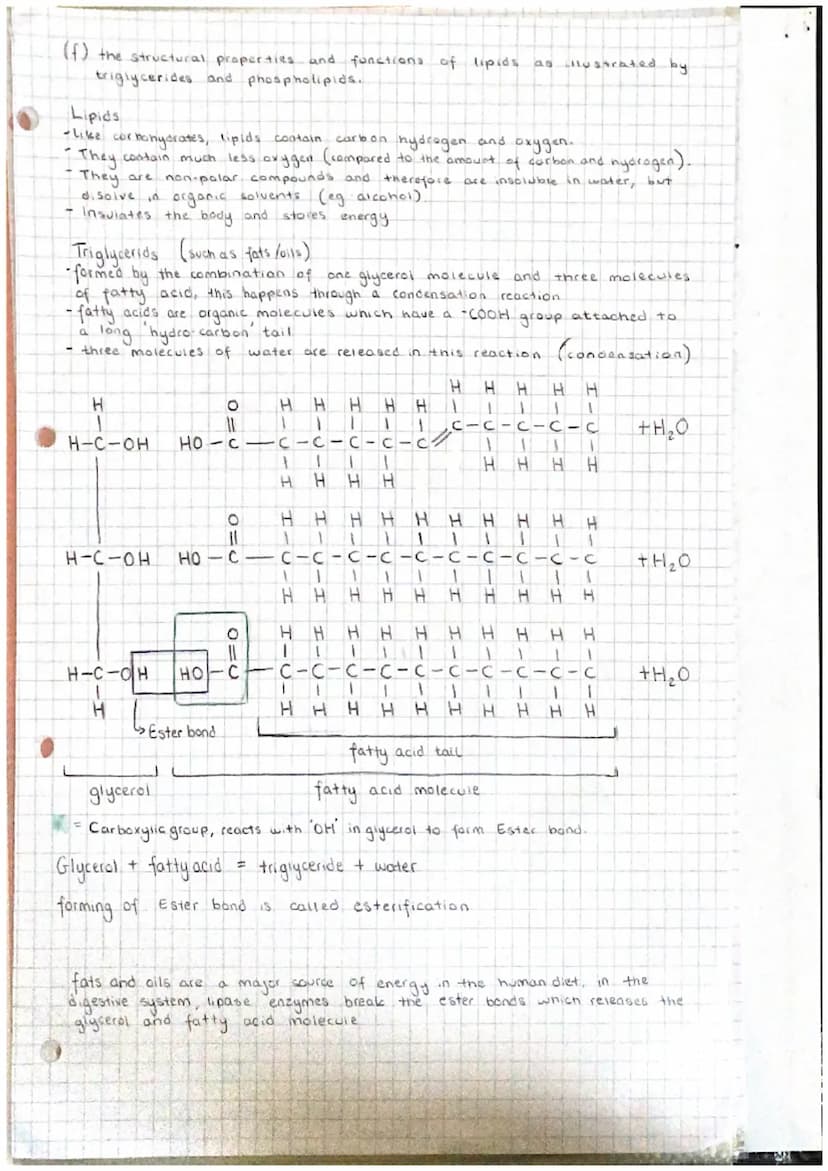 (f) the structural properties and functions of lipids as illustrated by
triglycerides and phospholipids.
Lipids
-Like carbohydrates, lipids contain carbon hydrogen and oxygen.
- They contain much less oxygen (compared to the amount of carbon and hydrogen).
- They are non-polar compounds and therefore are insoluble in water, but
disolve in organic solvents (eg alcohol)
- Insulates the body and stores energy
Triglycerids (such as fats/oils)
-formed by the combination of one glycerol molecule and three molecules
of fatty acid, this happens through a condensation reaction
- fatty acids are organic molecules which have a -COOH group attached to
a long 'hydro-carbon' tail
- three molecules of water are released in this reaction (condensation)
H H H H H
H O H H H H H
C-C-C-C-C +H₂O
H-C-OH HO-C-C-C-C-C-C
H H H H
H H H H
O H H H H H H H H H H
H-C-OH HO-C-C-C-C-C-C-C-C-C-C-C +H₂O
H H H H H H H H H H
O H H H H H H H H H H
H-C-OH HO-C-C-C-C-C-C-C-C-C-C-C +H₂O
H H H H H H H H H H H
Ester bond
fatty acid tail
glycerol fatty acid molecule
= Carboxylic group, reacts with 'OH' in glycerol to form Ester bond.
Glycerol + fatty acid = triglyceride + water
forming of Ester bond is called esterification
fats and oils are a major source of energy in the human diet, in the
digestive system, lipase enzymes break the ester bonds which releases the
glyserol and fatty acid molecule